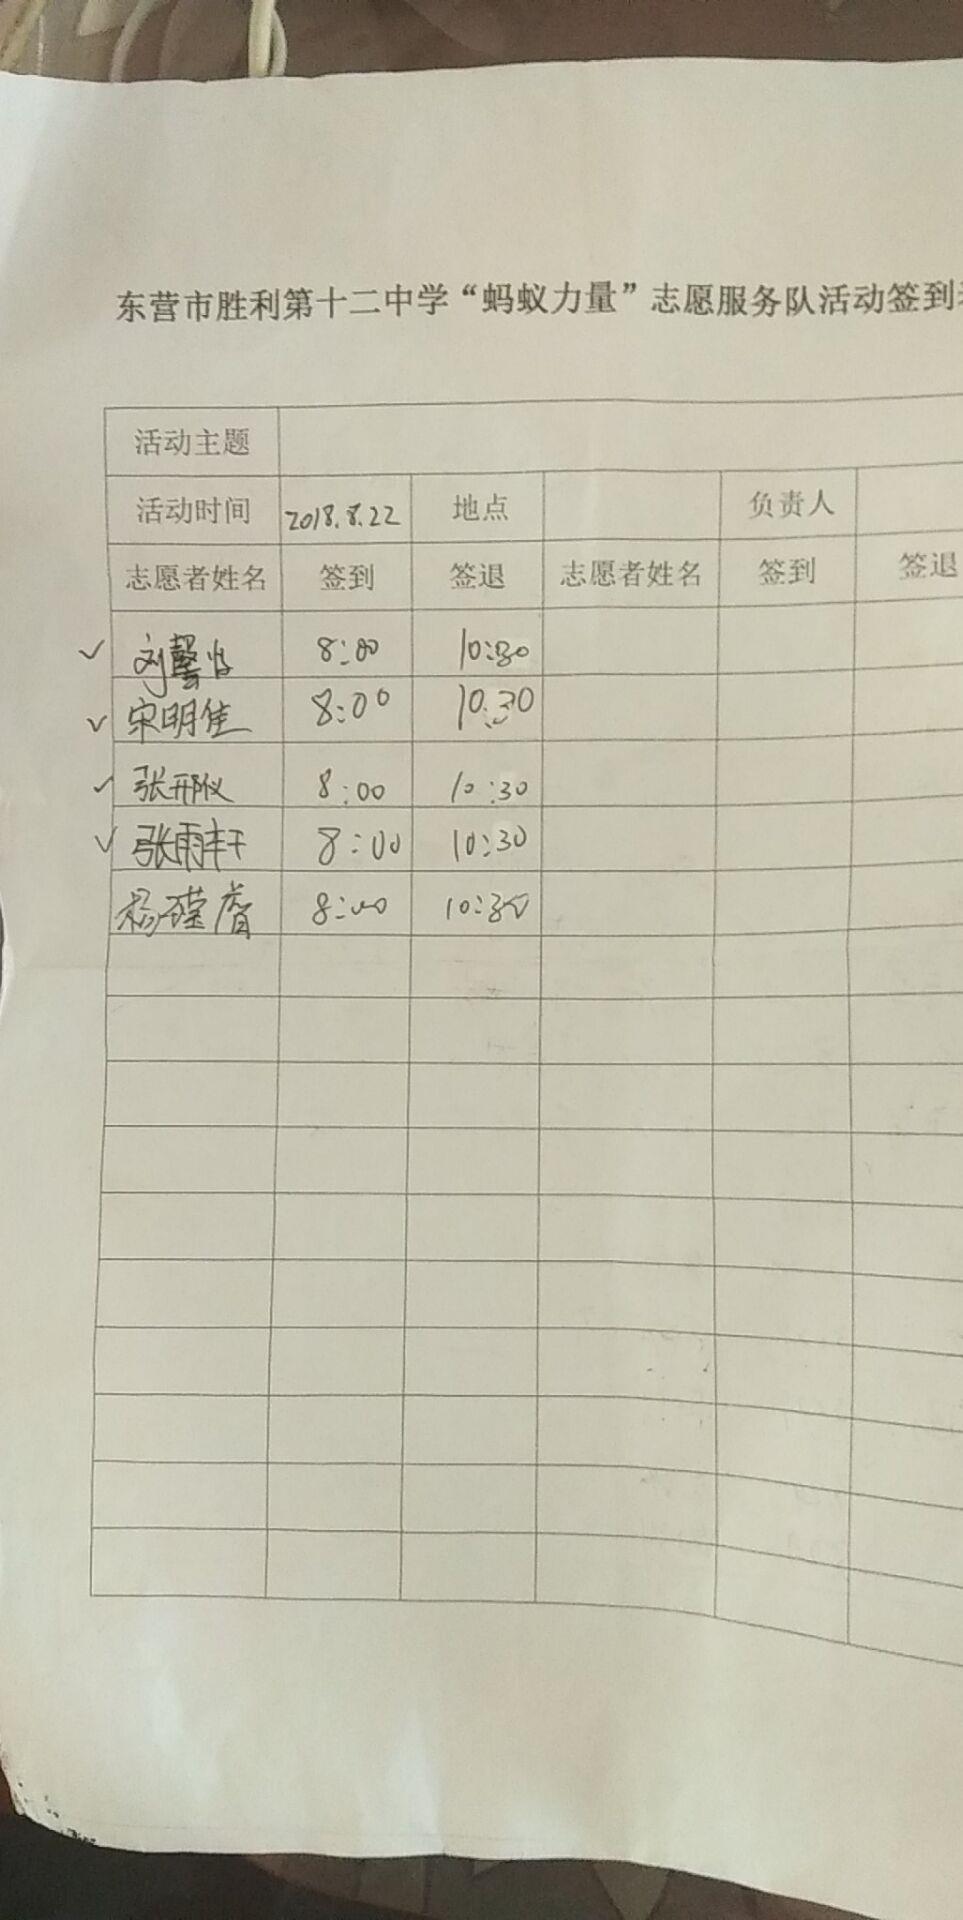 东营市胜利第十二中学“蚂蚁力量”志愿服务队活动签到
活动主题
活动时间 2018.8.22 地点 负责人
志愿者姓名 签到 签退 志愿者姓名 签到 签退
✓ 刘馨 8:00 10:30
✓ 宋明佳 8:00 10:30
✓ 张邢仪 8:00 10:30
✓ 张雨轩 8:00 10:30
杨瑾睿 8:00 10:30